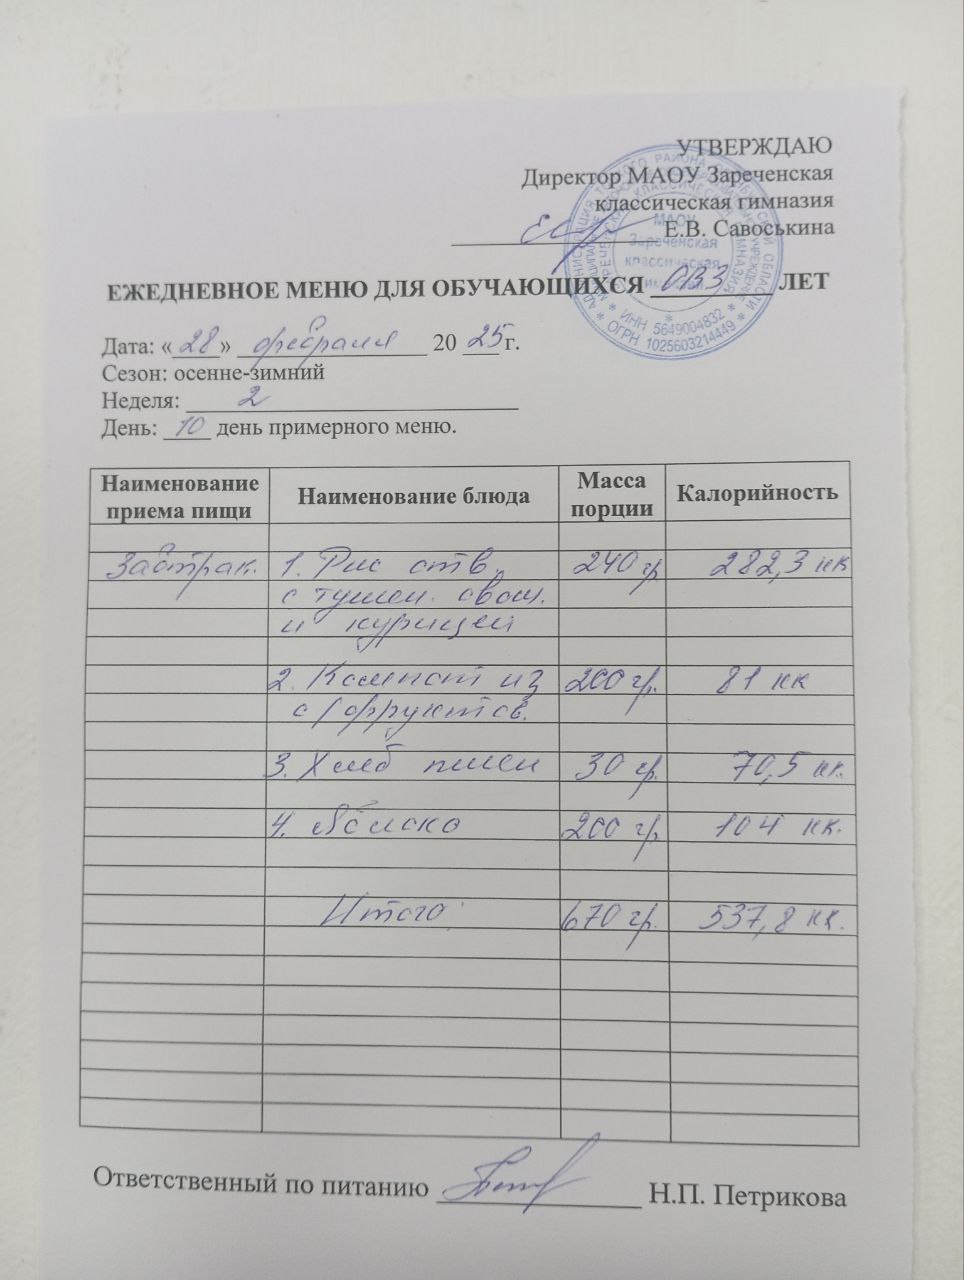 УТВЕРЖДАЮ
Директор МАОУ Зареченская
классическая гимназия
Е.В. Савоськина
ЕЖЕДНЕВНОЕ МЕНЮ ДЛЯ ОБУЧАЮЩИХСЯ ОВЗ ЛЕТ
МАОУ
Зареченская
классическая
* ИНН 5649004832 *
* ОГРН 1025603214449 *
Дата: «28» февраля 2025 г.
Сезон: осенне-зимний
Неделя: 2
День: 10 день примерного меню.
Наименование приема пищи Наименование блюда Масса порции Калорийность
Завтрак. 1. Рис отв. 240 гр 282,3 кк
с тушен. овощ.
и курицей
2. Компот из 200 гр. 81 кк
с/фруктов.
3. Хлеб пшен 30 гр. 70,5 кк.
4. Яблоко 200 гр 104 кк.
Итого: 670 гр. 537,8 кк.
Ответственный по питанию Н.П. Петрикова